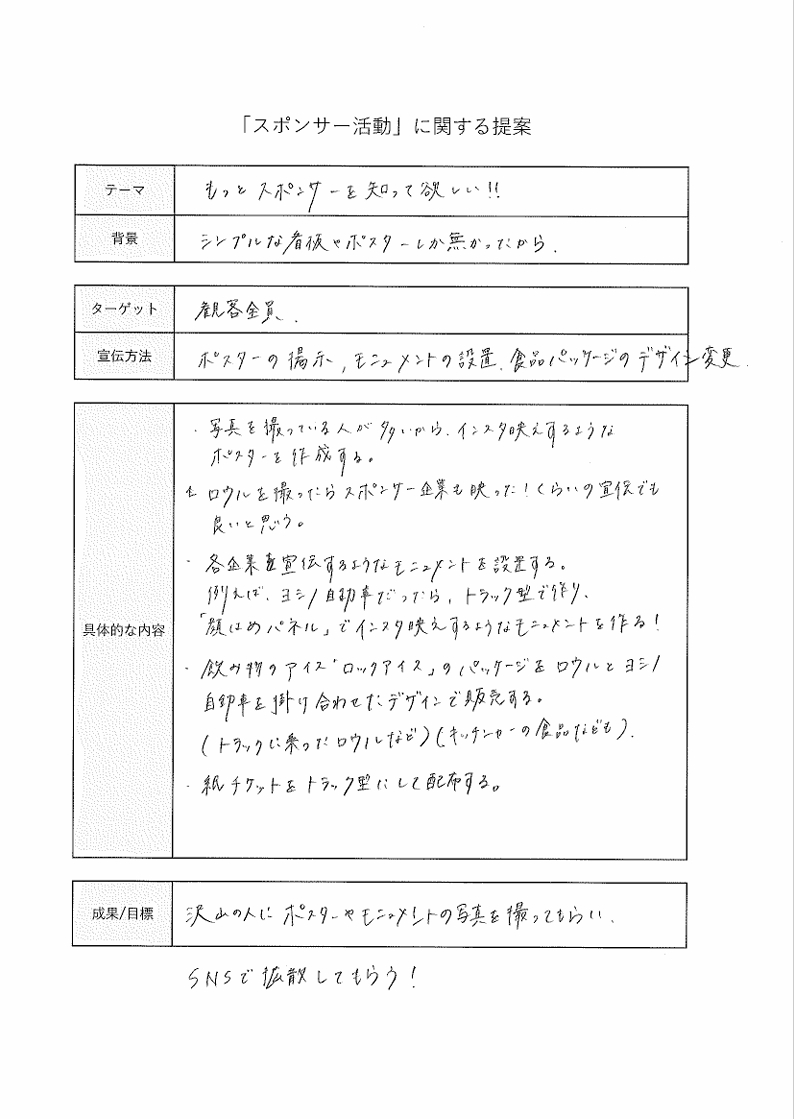 「スポンサー活動」に関する提案
テーマ
もっとスポンサーを知って欲しい!!
背景
シンプルな看板やポスターしか無かったから.
ターゲット
観客全員.
宣伝方法
ポスターの掲示,モニュメントの設置.食品パッケージのデザイン変更.
具体的な内容
・写真を撮っている人が多いから、インスタ映えするような
ポスターを作成する。
ロウルを撮ったらスポンサー企業も映った!くらいの宣伝でも
良いと思う。
・各企業を宣伝するようなモニュメントを設置する。
例えば、ヨシノ自動車だったら,トラック型で作り、
「顔はめパネル」でインスタ映えするようなモニュメントを作る!
・飲み物のアイス「ロックアイス」のパッケージをロウルとヨシノ
自動車を掛け合わせたデザインで販売する。
(トラックに乗ったロウルなど)(キッチンカーの食品なども).
・紙チケットをトラック型にして配布する。
成果/目標
沢山の人にポスターやモニュメントの写真を撮ってもらい.
SNSで拡散してもらう!